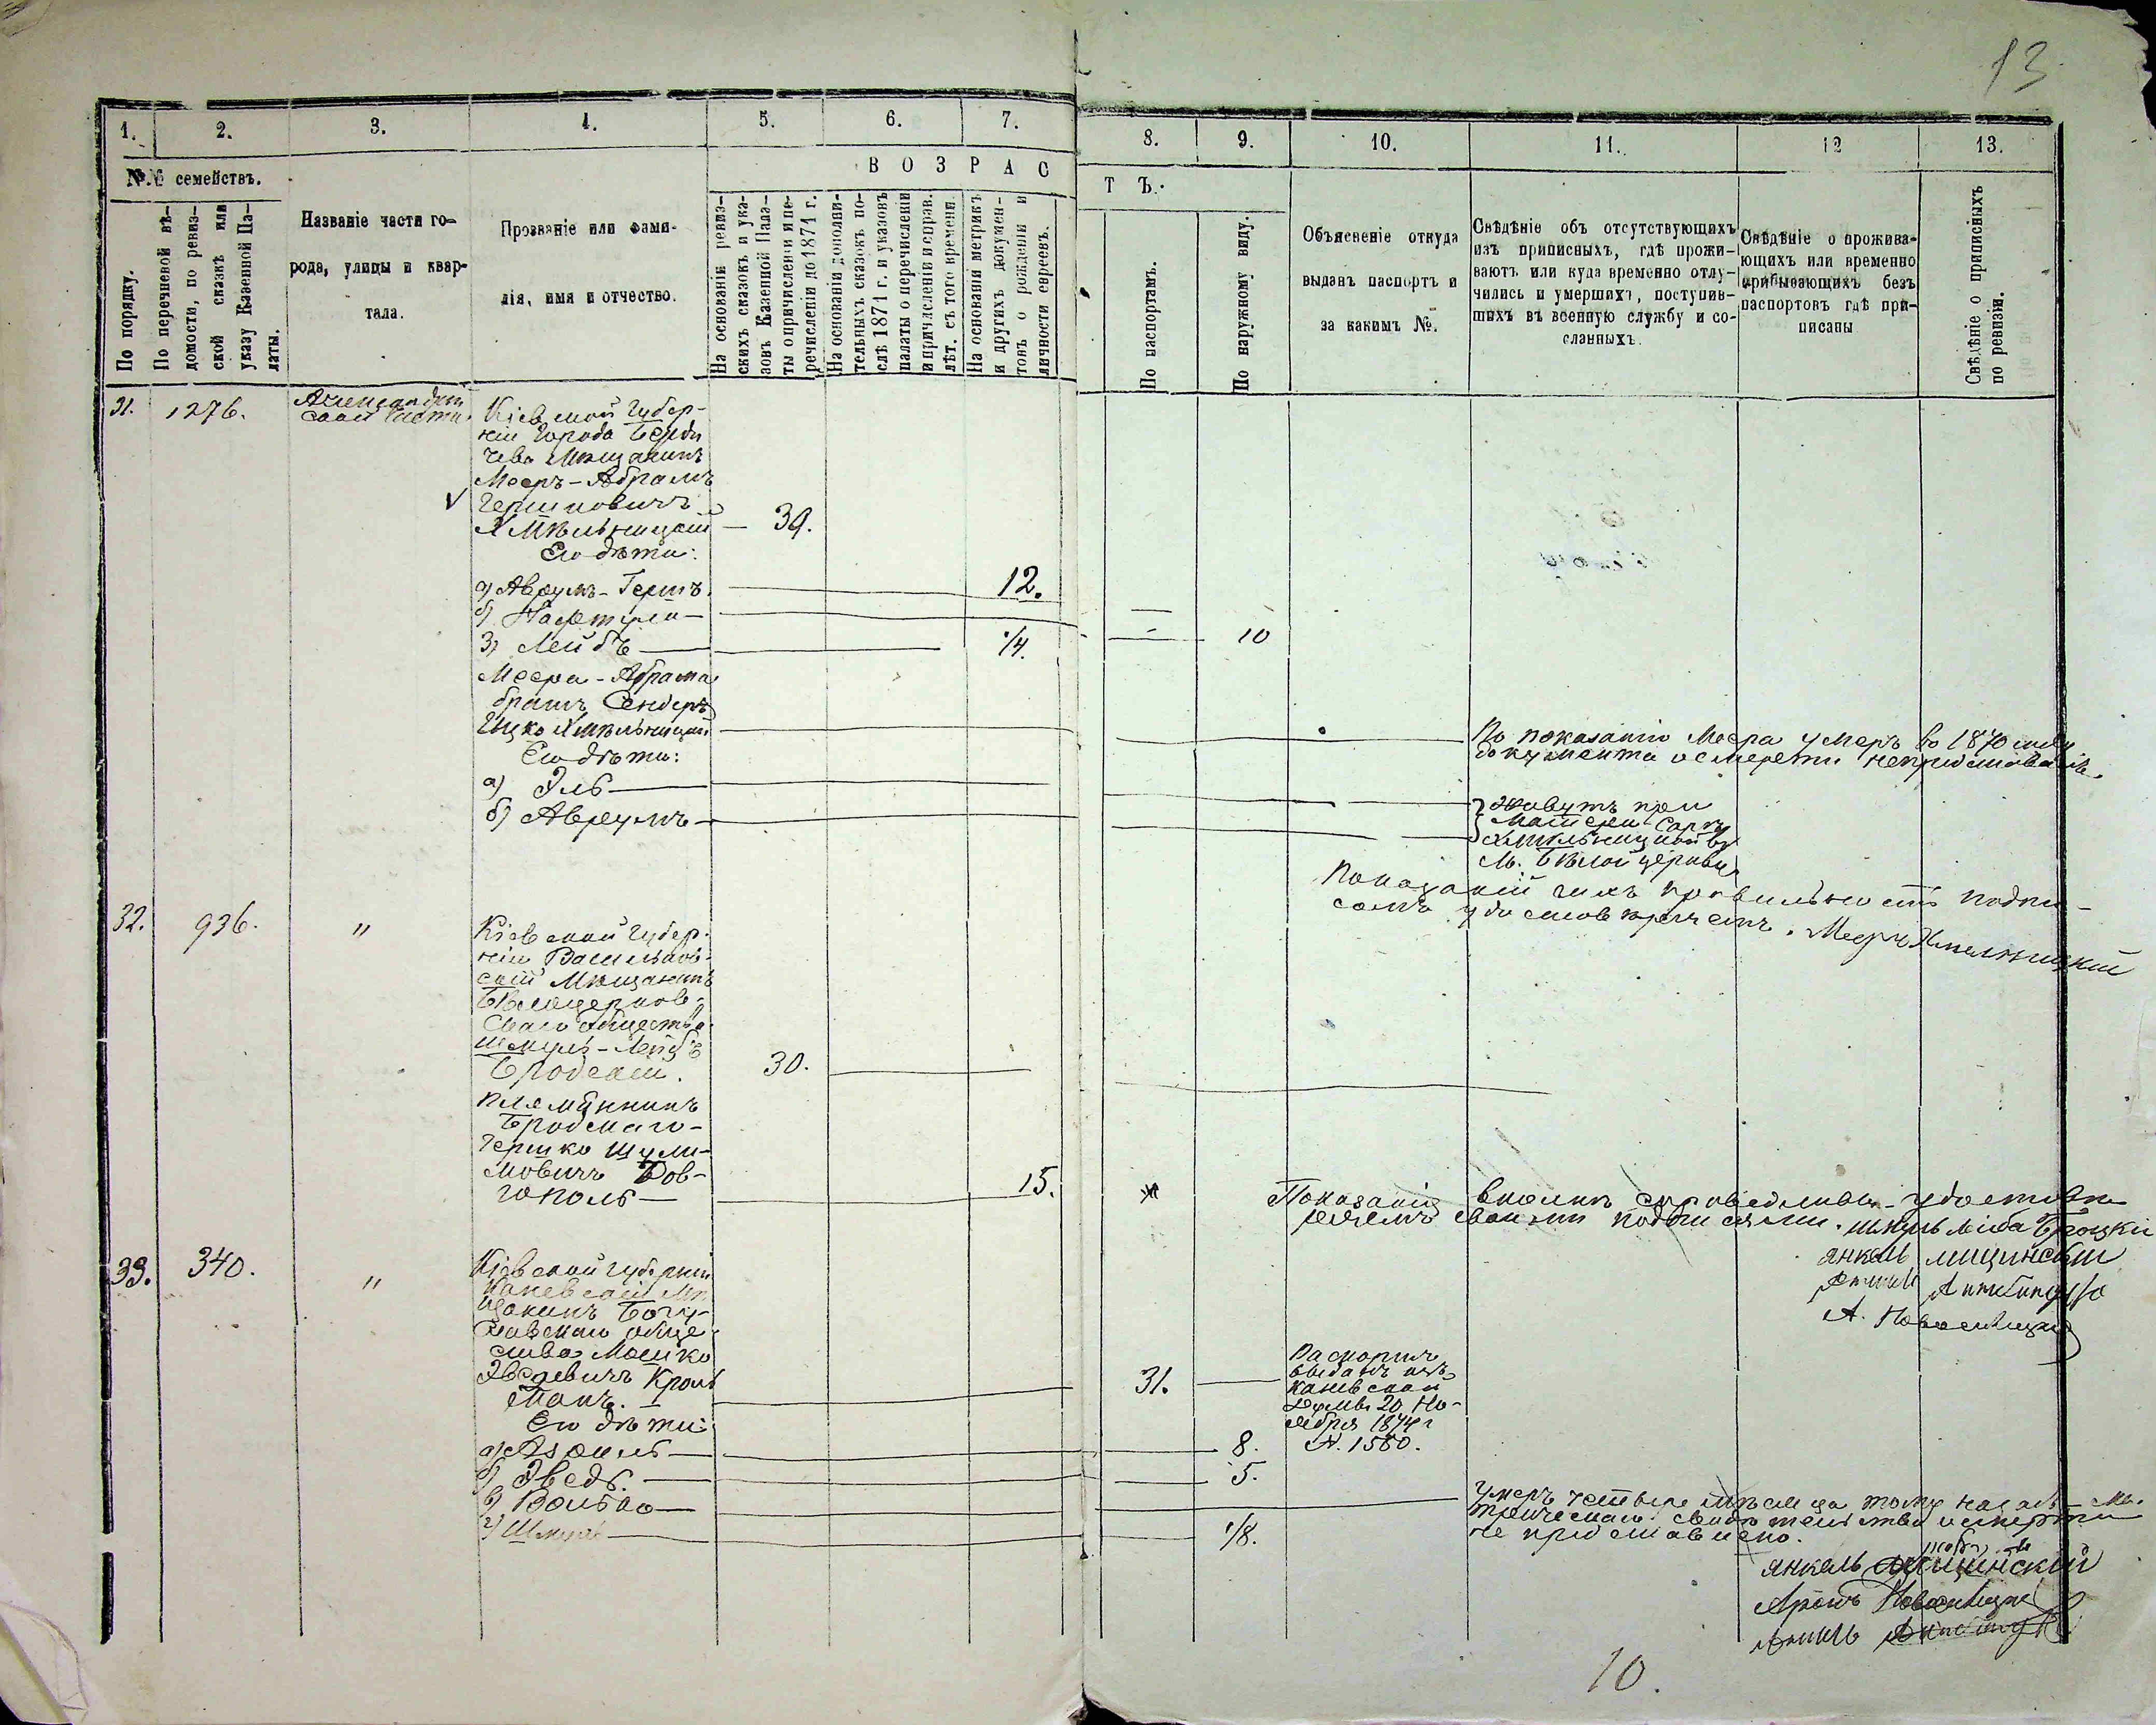 13
1.
2.
3.
4.
5.
6.
7.
8.
9.
10.
11.
12
13.
№.№ семействъ.
По порядку.
По перечневой вѣ-
домости, по ревиз-
ской сказкѣ или
указу Казенной Па-
латы.
Названіе части го-
рода, улицы и квар-
тала.
Прозваніе или фами-
лія, имя и отчество.
ВОЗРАС
ТЪ.
На основаніи ревиз-
скихъ сказокъ и ука-
зовъ Казенной Пала-
ты о причисленіи и пе-
речисленіи до 1871 г.
На основаніи дополни-
тельныхъ сказокъ по-
слѣ 1871 г. и указовъ
палаты о перечисленіи
и причисленіи и справ.
лѣт. съ того времени.
На основаніи метрикъ
и другихъ докумен-
товъ о рожденіи и
личности евреевъ.
По паспортамъ.
По наружному виду.
Объясненіе откуда
выданъ паспортъ и
за какимъ №.
Свѣдѣніе объ отсутствующихъ
изъ приписныхъ, гдѣ прожи-
ваютъ или куда временно отлу-
чились и умершихъ, поступив-
шихъ въ военную службу и со-
сланныхъ.
Свѣдѣніе о прожива-
ющихъ или временно
прибывающихъ безъ
паспортовъ гдѣ при-
писаны
Свѣдѣніе о приписныхъ
по ревизіи.
31.
1276.
части
Кіевской Губер-
ніи Города Берди
чева Мѣщанинъ
Мееръ-Абрамъ
Гершковичъ
Хмѣльницкій — 39.
Его дѣти:
а) Аврумъ-Гершъ 12.
б) Нафтула — 10
3) Лейбъ — 1/4.
Меера-Абрама
братъ Сендеръ
Ицко Хмѣльницкій
По показанію Меера умеръ въ 1870 году
документа о смерти непредставилъ.
Его дѣти:
а) Эль —
б) Аврумъ —
Живутъ при
матери Саррѣ
Хмѣльницкой въ
М. Бѣлой церкви
Показаній сихъ правильность подпи-
сомъ удостовѣряетъ. Мееръ Хмельницкий
32.
936.
"
Кіевской Губер-
ніи Васильков-
скій Мѣщанинъ
Бѣлоцерков-
скаго общества
Шмуль-Лейбъ
Бродскій. 30.
Племянникъ
Бродскаго-
Гершко Шули-
мовичъ Дов-
гополь — 15.
Показанія вполнѣ справедливы удостовѣ
ряемъ своими подписями. Шмуль Лейба Броцкій
Янкель Лищинский
А. Новоселицкий
33.
340.
"
Кіевской губерніи
Каневскій Мѣ
щанинъ Богу-
славскаго обще-
ства Мошко
Эвсѣевичъ Кроль
манъ. 31.
Паспортъ
выданъ изъ
каневской
Думы 20 Но-
ября 1874 г
№. 1580.
Его дѣти
а) — 8.
б) — 5.
в) Волько —
Умеръ четыре мѣсяца тому назадъ — Ме-
трическаго свидѣтельства о смерти
не представлено.
г) Шмуль — 1/8.
Янкель Лищинский
Аронъ Новоселицкий
10.